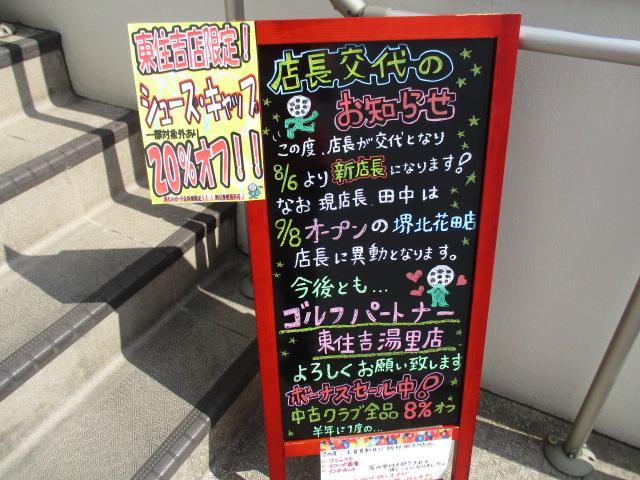 東住吉店限定!
シューズ・キャップ
一部対象外あり
20%オフ!!
店長交代の
お知らせ
この度、店長が交代となり
8/6より新店長になります!
なお現店長、田中は
9/8オープンの堺北花田店
店長に異動となります。
今後とも…
ゴルフパートナー
東住吉湯里店
よろしくお願い致します
ボーナスセール中!!
中古クラブ全品8%オフ
半年に1度の…